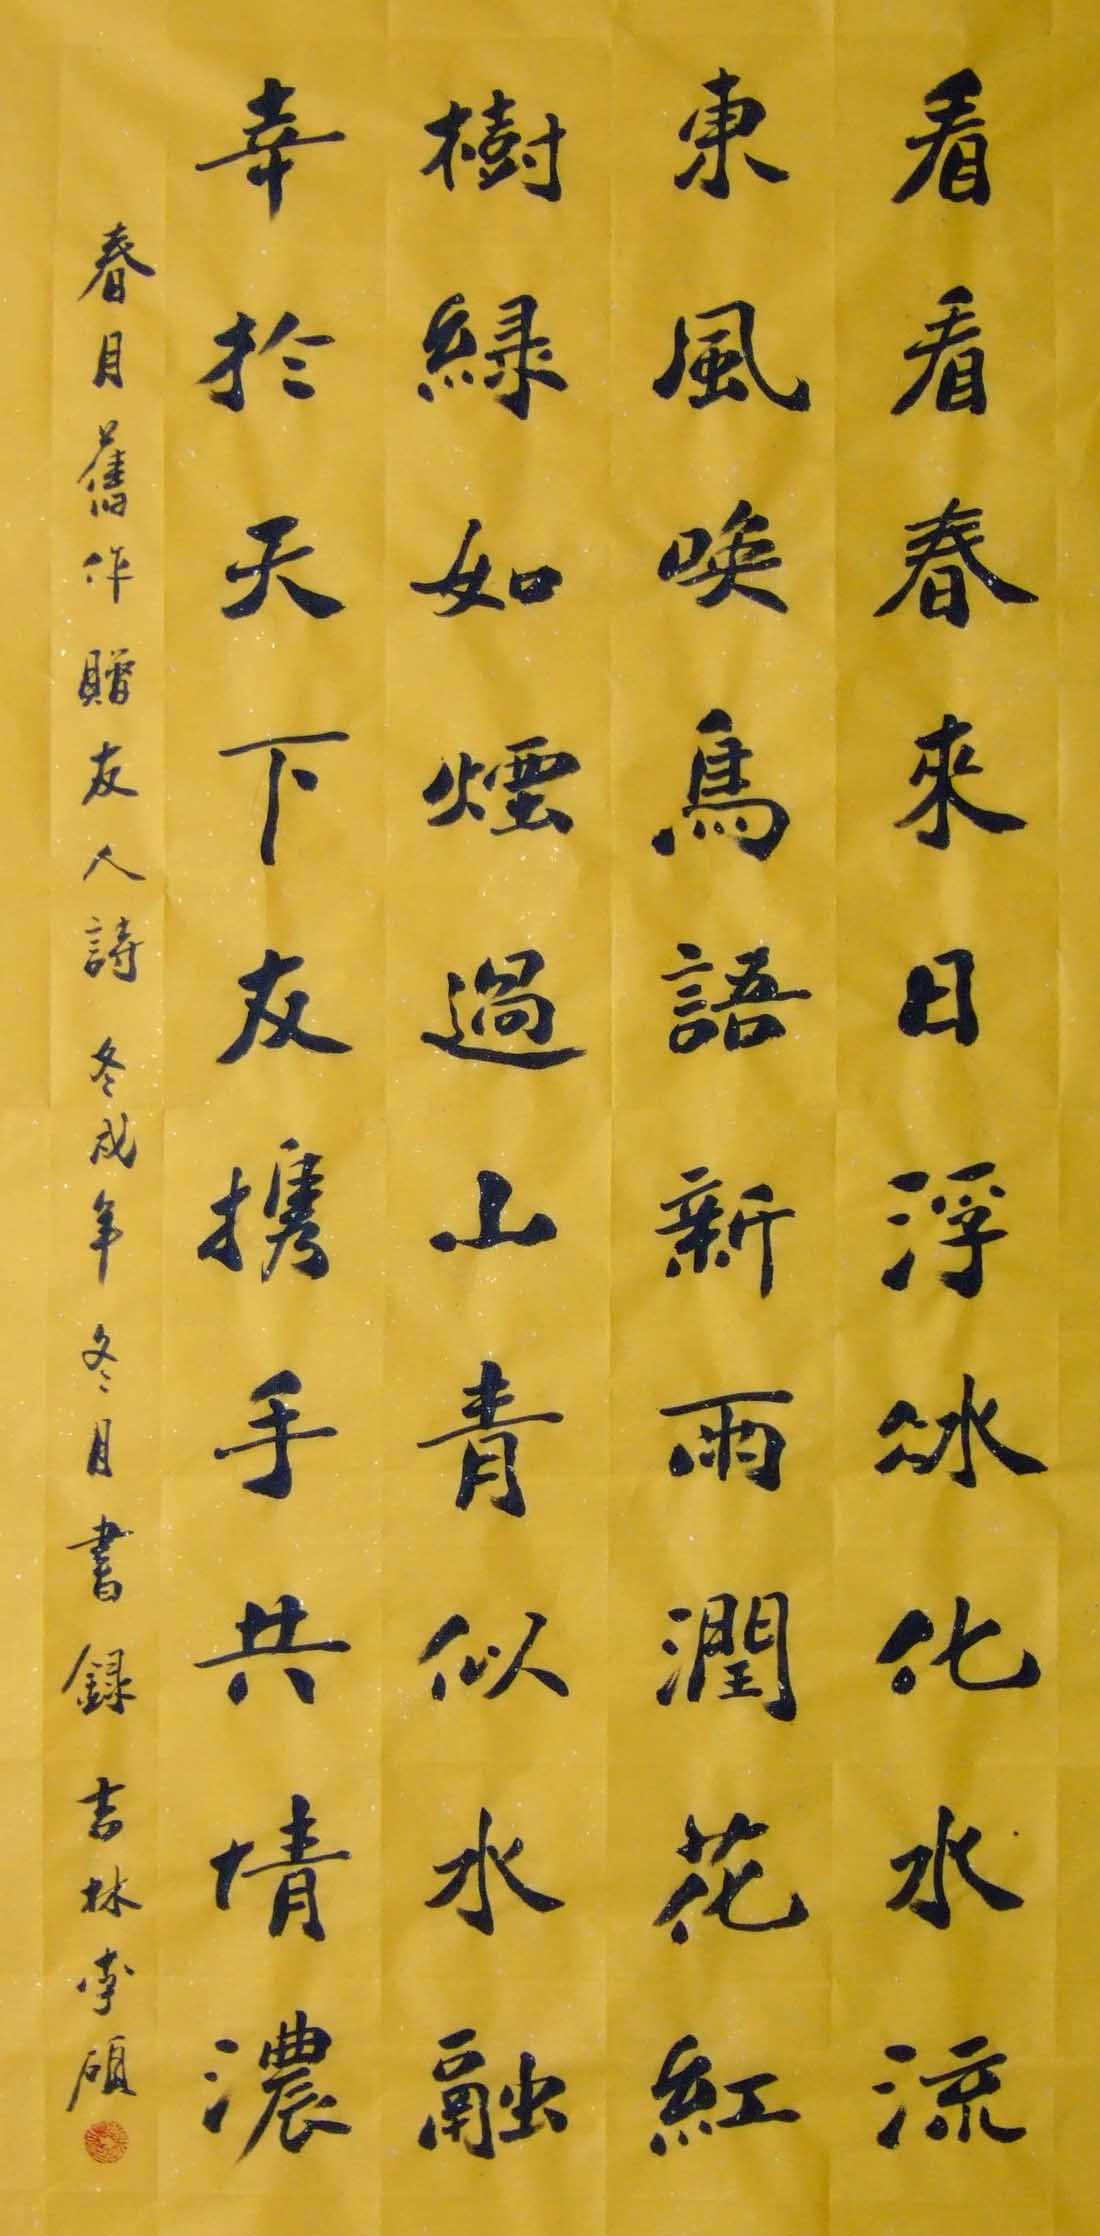 看看春來日浮冰化水流
東風喚鳥語新雨潤花紅
樹綠如煙過山青似水融
幸於天下友攜手共情濃
春月舊作贈友人詩 冬戌年冬月書録 吉林李碩